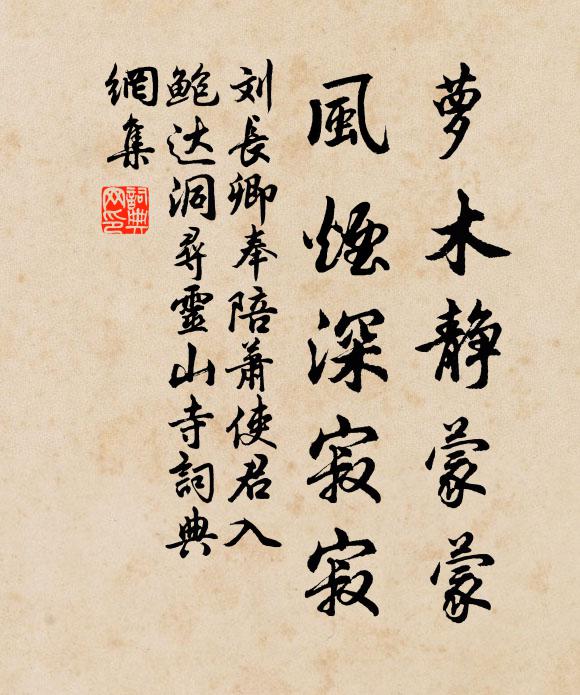 萝木静蒙蒙
風煙深寂寂
刘長卿奉陪萧使君入
鲍达洞尋靈山寺詞典
網集
詞典
网印